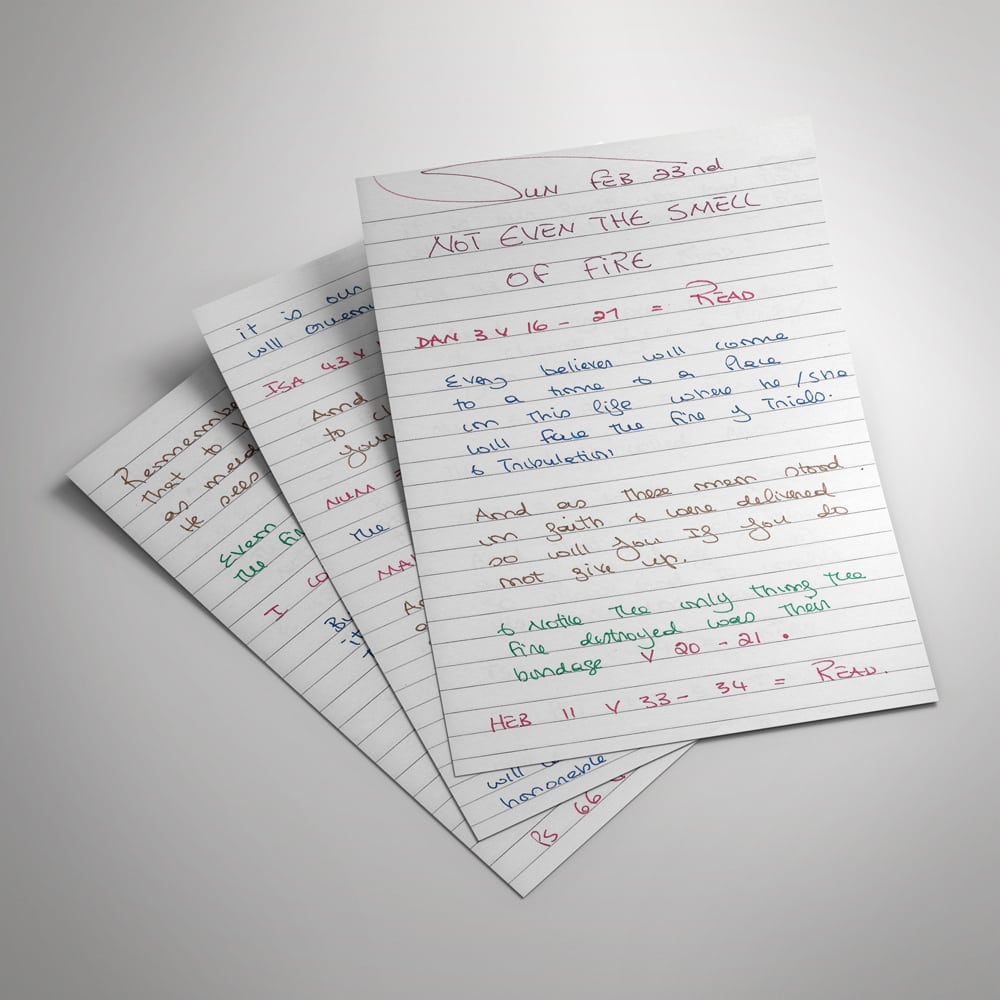 SUN FEB 23nd
NOT EVEN THE SMELL
OF FIRE
DAN 3 V 16 - 27 = READ
Every believer will come
to a time & a place
in this life where he/she
will face the fire of Trials.
& Tribulation
And as these men stood
in faith & were delivered
so will you If you do
not give up.
& Notice the only thing the
fire destroyed was their
bondage V 20 - 21.
HEB 11 V 33 - 34 = READ.
it is our
will
ISA 43 V
And
to
your
NUM
The
will
honorable
Remembe
that to
as
He sees
Even
the
I
PS 66